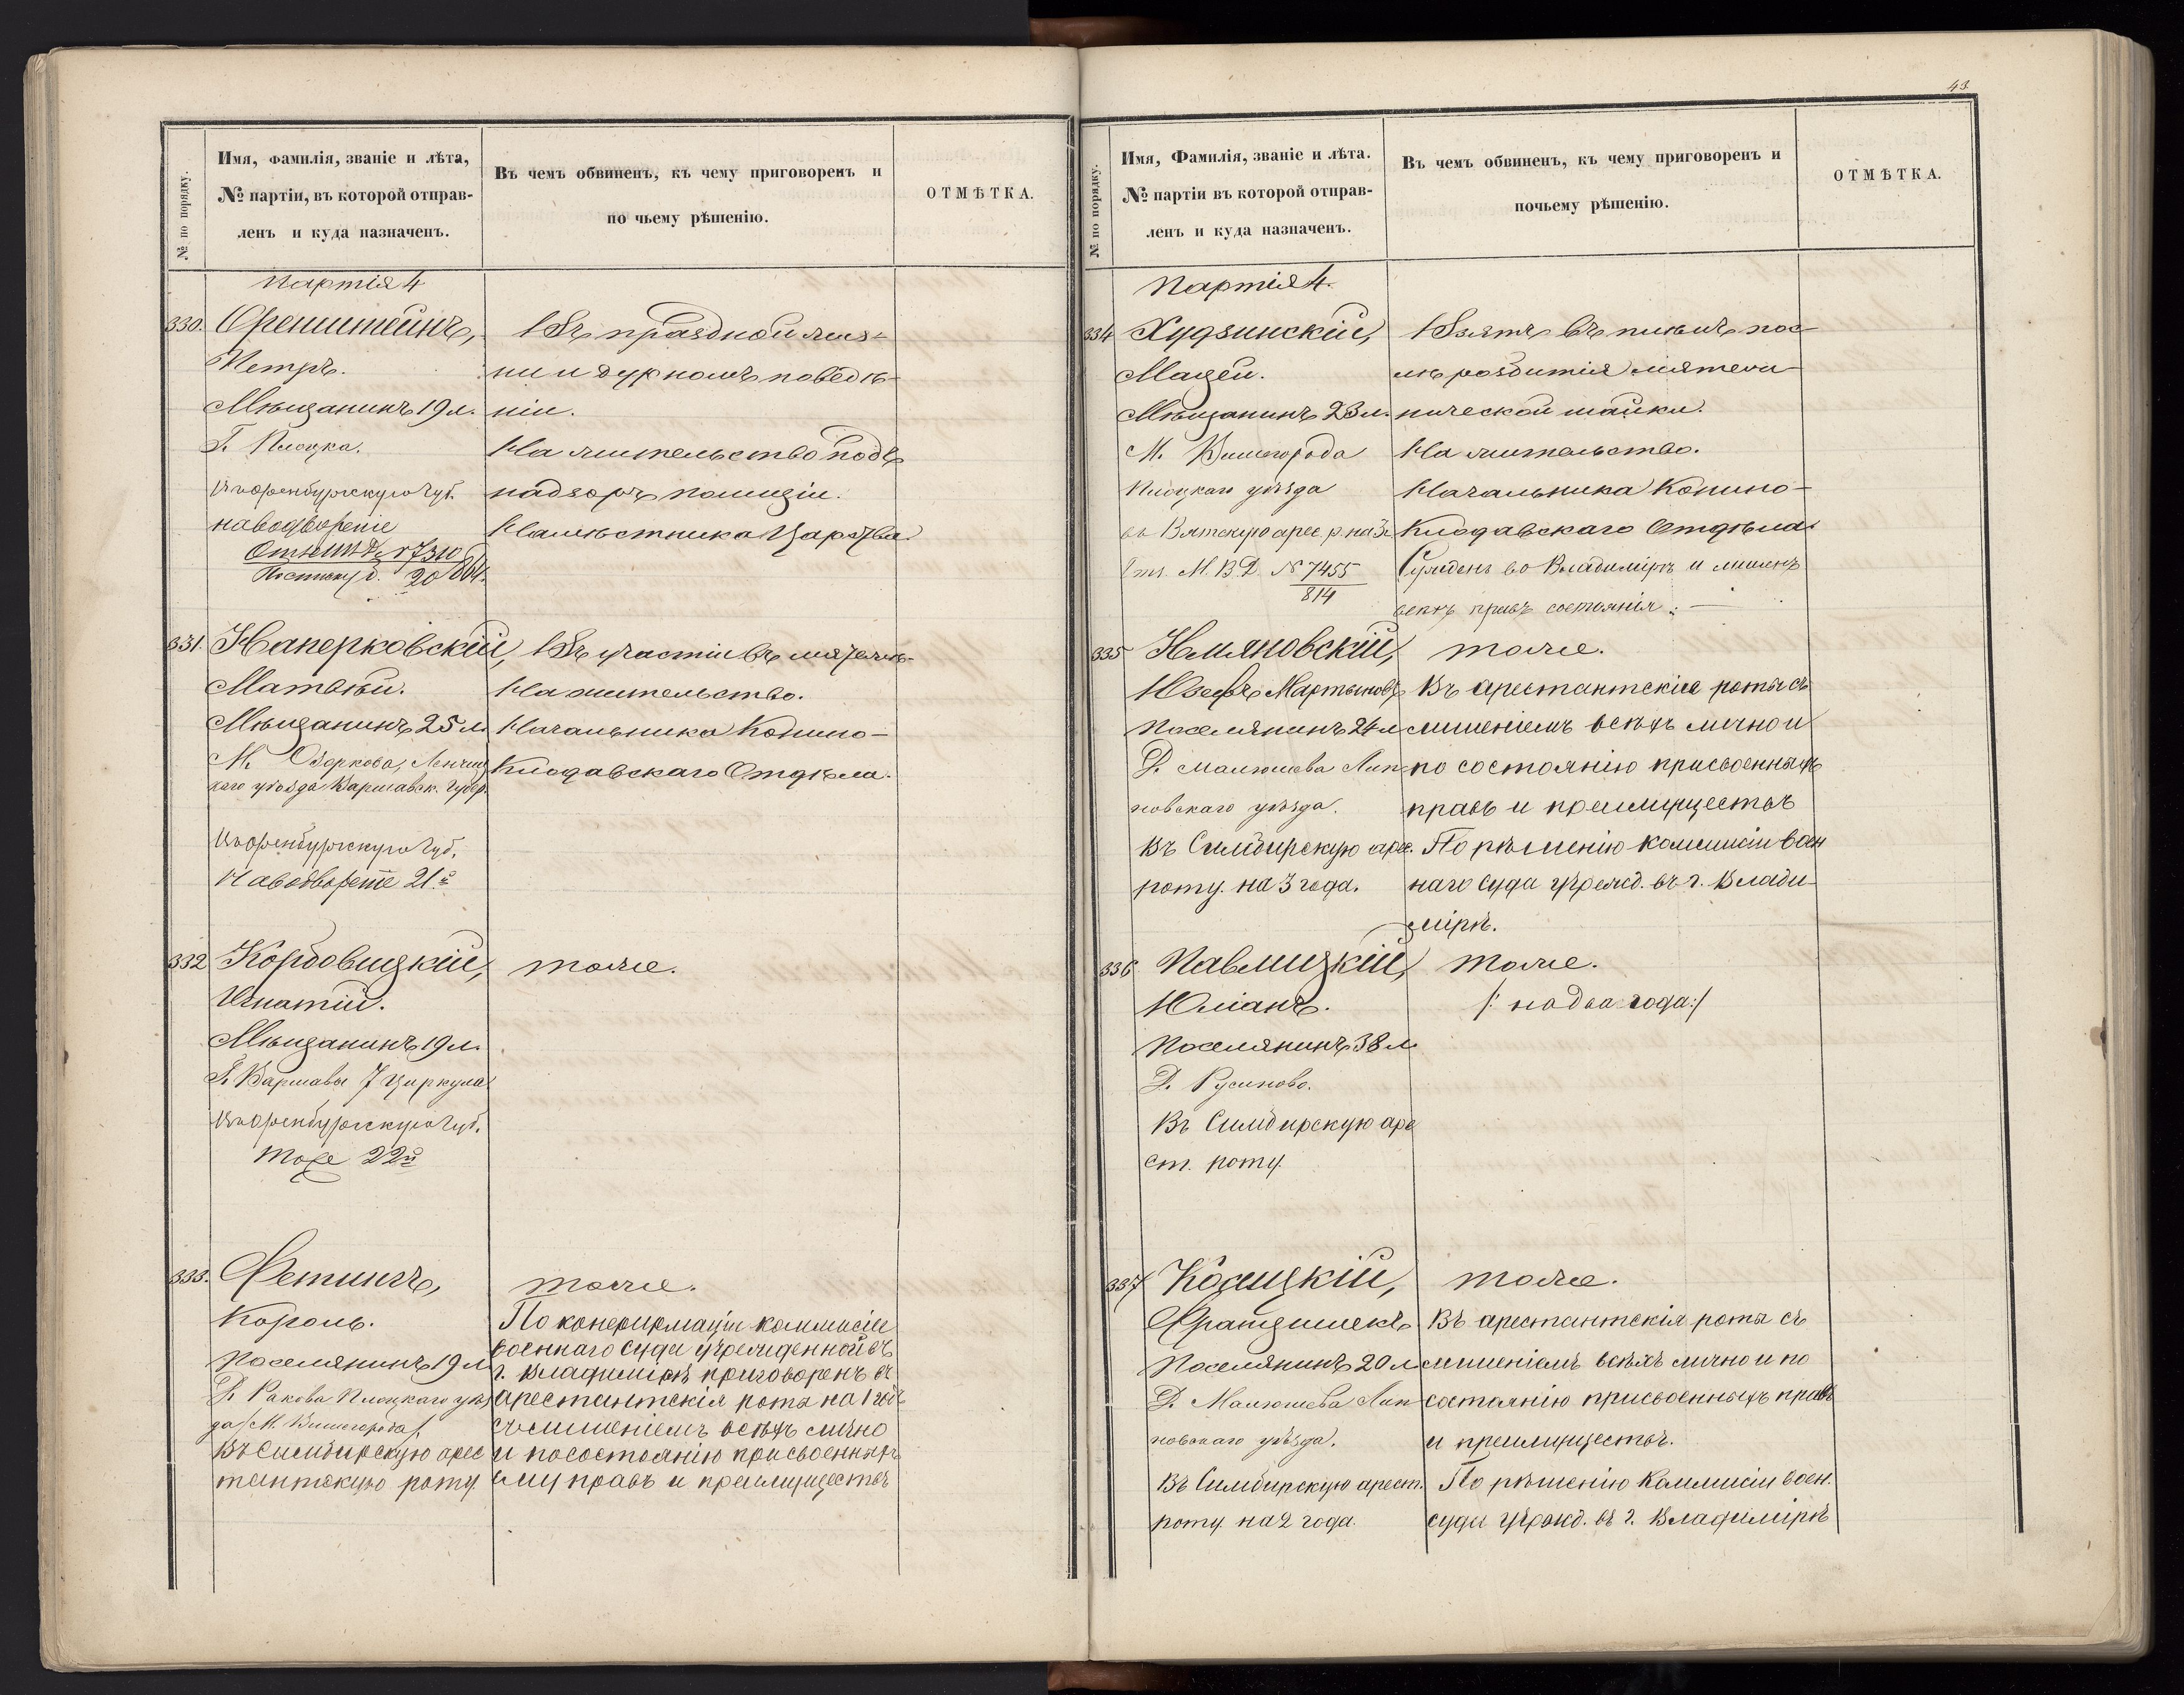 43
№ по порядку.
Имя, фамилія, званіе и лѣта,
№ партіи, въ которой отправ-
ленъ и куда назначенъ.
Въ чемъ обвиненъ, къ чему приговоренъ и
по чьему рѣшенію.
ОТМѢТКА.
Партія 4
330. Оренштейнъ,
Петръ.
Мѣщанинъ 19 л.
Г. Плоцка.
въ Оренбургскую губ.
на водвореніе
Въ праздной жиз-
ни и дурномъ поведѣ-
ніи.
На жительство подъ
надзоръ полиціи.
Намѣстника Царства
331. Наперковскій,
Матвѣй.
Мѣщанинъ 25 л.
М. Озоркова, Ленчиц
каго уѣзда Варшавск. Губер.
въ Оренбургскую Губ.
на водвореніе 21й
Въ участіи въ мятежѣ.
На жительство.
Начальника Конино-
Клодавскаго Отдѣла.
332 Кордовицкій,
Игнатій.
Мѣщанинъ 19 л.
Г. Варшавы 7 Циркула
въ Оренбургскую Губ.
тоже 22й
тоже.
333. Фетингъ,
Кароль.
Поселянинъ 19 л
Д. Ракова Плоцкаго уѣз
да /М. Вышегорода/.
Въ Симбирскую арес
тантскую роту.
тоже.
По конфирмаціи коммисіи
военнаго суда учрежденной въ
г. Владимірѣ приговоренъ въ
арестантскія роты на 1 годъ
съ лишеніемъ всѣхъ лично
и по состоянію присвоенныхъ
ему правъ и преимуществъ
№ по порядку.
Имя, Фамилія, званіе и лѣта.
№ партіи въ которой отправ-
ленъ и куда назначенъ.
Въ чемъ обвиненъ, къ чему приговоренъ и
почьему рѣшенію.
ОТМѢТКА.
Партія 4.
334 Худзинскій,
Мацей.
Мѣщанинъ 23 л.
М. Вышегорода
Плоцкаго уѣзда
въ Вятскую арес. р. на 3
От. М. В. Д. № 7455
814
Взятъ въ плѣнъ пос-
лѣ розбитія мятеж-
нической шайки.
На жительство.
Начальника Конино-
Клодавскаго Отдѣла
Сужденъ во Владимірѣ и лишенъ
всѣхъ правъ состоянія. —
335 Юзефъ Мартыновъ
Поселянинъ 24 л
Д. Малюшева Лип-
новскаго уѣзда.
Въ Симбирскую арес.
роту. на 3 года.
тоже.
Въ арестантскія роты съ
лишеніемъ всѣхъ лично и
по состоянію присвоенныхъ
правъ и преимуществъ
По рѣшенію коммисіи воен
наго суда учрежд. въ г. Влади-
мірѣ.
336 Павлицкій,
Юліанъ.
Поселянинъ 38 л.
Д. Русиново.
Въ Симбирскую аре
ст. роту.
тоже.
/: на два года :/
337 Косицкій,
Францишекъ
Поселянинъ 20 л
Д. Малюшева Лип-
новскаго уѣзда.
Въ Симбирскую арест.
роту. на 2 года.
тоже.
Въ арестантскія роты съ
лишеніемъ всѣхъ лично и по
состоянію присвоенныхъ правъ
и преимуществъ.
По рѣшенію Коммисіи воен.
суда учрежд. въ г. Владимірѣ